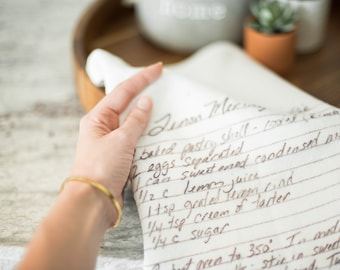 home
Lemon Mer
baked pastry shell -
eggs separated
1 can sweetened condensed m
1/2 c lemon juice
1 tsp grated lemon rind
1/4 tsp cream of tarter
1/4 c sugar
oven to 350° In
in sweet